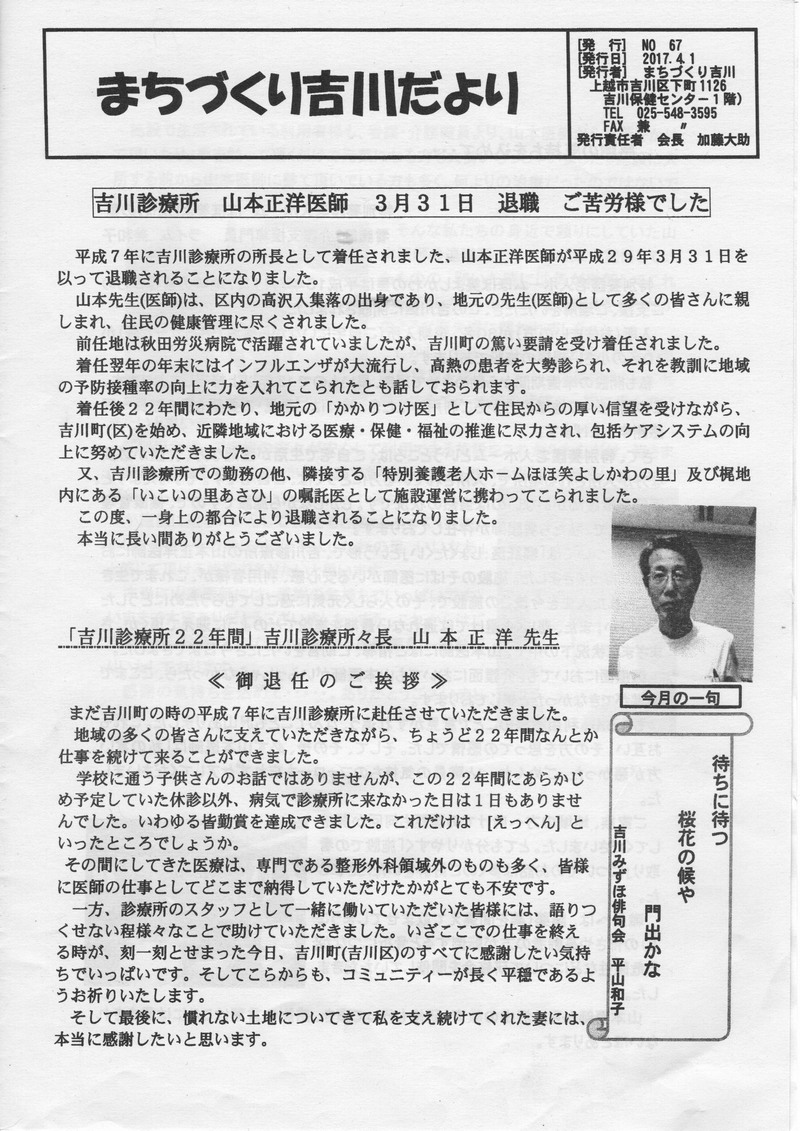 まちづくり吉川だより
[発　行]　NO　67
[発行日]　2017.4.1
[発行者]　まちづくり吉川
上越市吉川区下町1126
吉川保健センター1階)
TEL　025-548-3595
FAX　兼　〃
発行責任者　会長　加藤大助
吉川診療所　山本正洋医師　3月31日　退職　ご苦労様でした
平成7年に吉川診療所の所長として着任されました、山本正洋医師が平成29年3月31日を
以って退職されることになりました。
山本先生(医師)は、区内の高沢入集落の出身であり、地元の先生(医師)として多くの皆さんに親
しまれ、住民の健康管理に尽くされました。
前任地は秋田労災病院で活躍されていましたが、吉川町の篤い要請を受け着任されました。
着任翌年の年末にはインフルエンザが大流行し、高熱の患者を大勢診られ、それを教訓に地域
の予防接種率の向上に力を入れてこられたとも話しておられます。
着任後22年間にわたり、地元の「かかりつけ医」として住民からの厚い信望を受けながら、
吉川町(区)を始め、近隣地域における医療・保健・福祉の推進に尽力され、包括ケアシステムの向
上に努めていただきました。
又、吉川診療所での勤務の他、隣接する「特別養護老人ホームほほ笑よしかわの里」及び梶地
内にある「いこいの里あさひ」の嘱託医として施設運営に携わってこられました。
この度、一身上の都合により退職されることになりました。
本当に長い間ありがとうございました。
「吉川診療所22年間」吉川診療所々長　山本正洋　先生
≪御退任のご挨拶≫
まだ吉川町の時の平成7年に吉川診療所に赴任させていただきました。
地域の多くの皆さんに支えていただきながら、ちょうど22年間なんとか
仕事を続けて来ることができました。
学校に通う子供さんのお話ではありませんが、この22年間にあらかじ
め予定していた休診以外、病気で診療所に来なかった日は1日もありませ
んでした。いわゆる皆勤賞を達成できました。これだけは　[えっへん]　と
いったところでしょうか。
その間にしてきた医療は、専門である整形外科領域外のものも多く、皆様
に医師の仕事としてどこまで納得していただけたかがとても不安です。
一方、診療所のスタッフとして一緒に働いていただいた皆様には、語りつ
くせない程様々なことで助けていただきました。いざここでの仕事を終え
る時が、刻一刻とせまった今日、吉川町(吉川区)のすべてに感謝したい気持
ちでいっぱいです。そしてこらからも、コミュニティーが長く平穏であるよ
うお祈りいたします。
そして最後に、慣れない土地についてきて私を支え続けてくれた妻には、
本当に感謝したいと思います。
今月の一句
待ちに待つ
桜花の候や
門出かな
吉川みずほ俳句会　平山和子